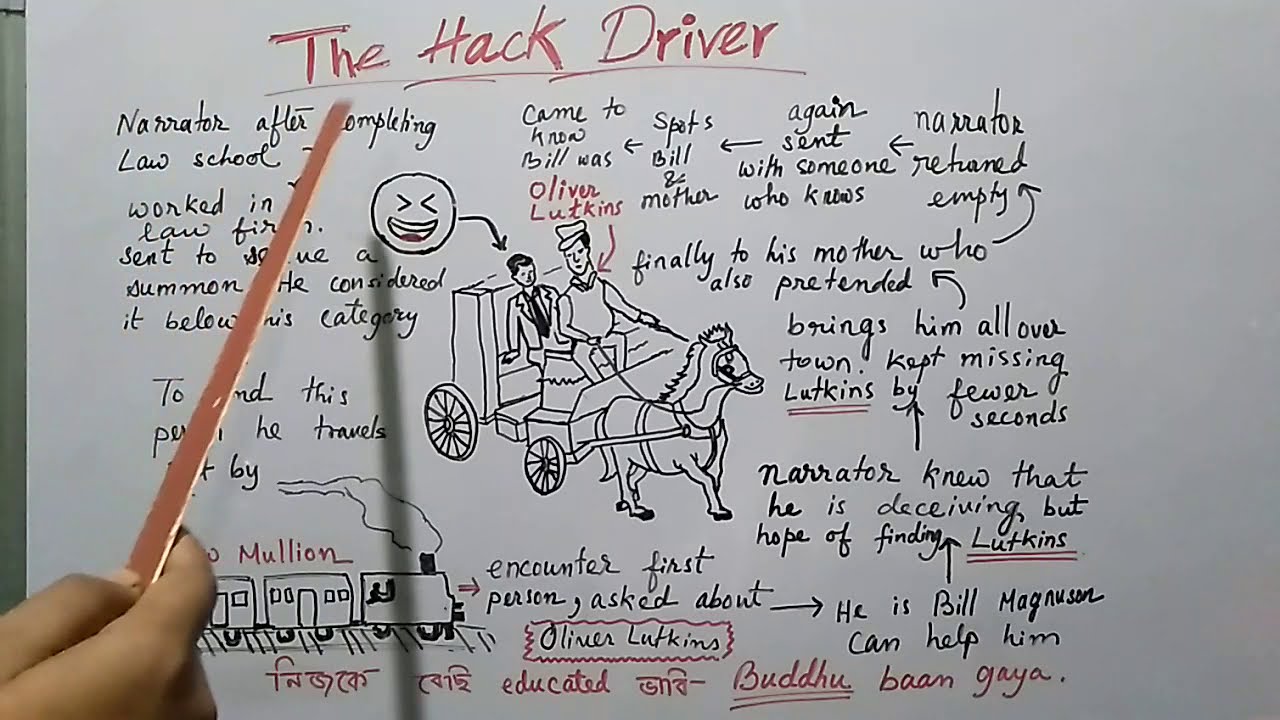 The Hack Driver
Narrator after completing
Law school
worked in
law firm.
sent to a
summon He considered
it below his category
To this
he travels
by
Mullion
encounter first
person, asked about
Oliver Lutkins
He is Bill Magnuson
can help him
narrator knew that
he is deceiving, but
hope of finding Lutkins
brings him all over
town. kept missing
Lutkins by fewer
seconds
finally to his mother who
also pretended
narrator
retruned
empty
again
sent
with someone
who knows
Spots
Bill
&
mother
came to
know
Bill was
Oliver
Lutkins
নিজকে বেছি educated ভাবি- Buddhu baan gaya.